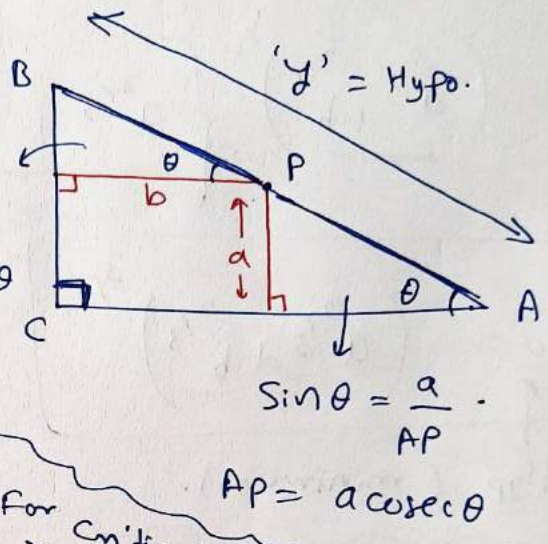 'y' = Hypo.
B
θ
P
b
a
θ
θ
A
C
Sinθ = a/AP .
AP = a cosecθ
For